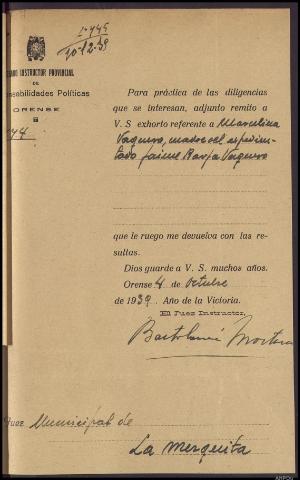 1º 445
10-12-39
GADO INSTRUCTOR PROVINCIAL
DE
nsabilidades Políticas
ORENSE
Para práctica de las diligencias
que se interesan, adjunto remito a
V. S exhorto referente a Marcelina
Vaquero, madre del expedien-
tado Jaime Vaquero
que le ruego me devuelva con las re-
sultas.
Dios guarde a V. S. muchos años.
Orense 4 de Octubre
de 1939. Año de la Victoria.
El Juez Instructor,
Bartolomé
Juez Municipal de
La Mezquita